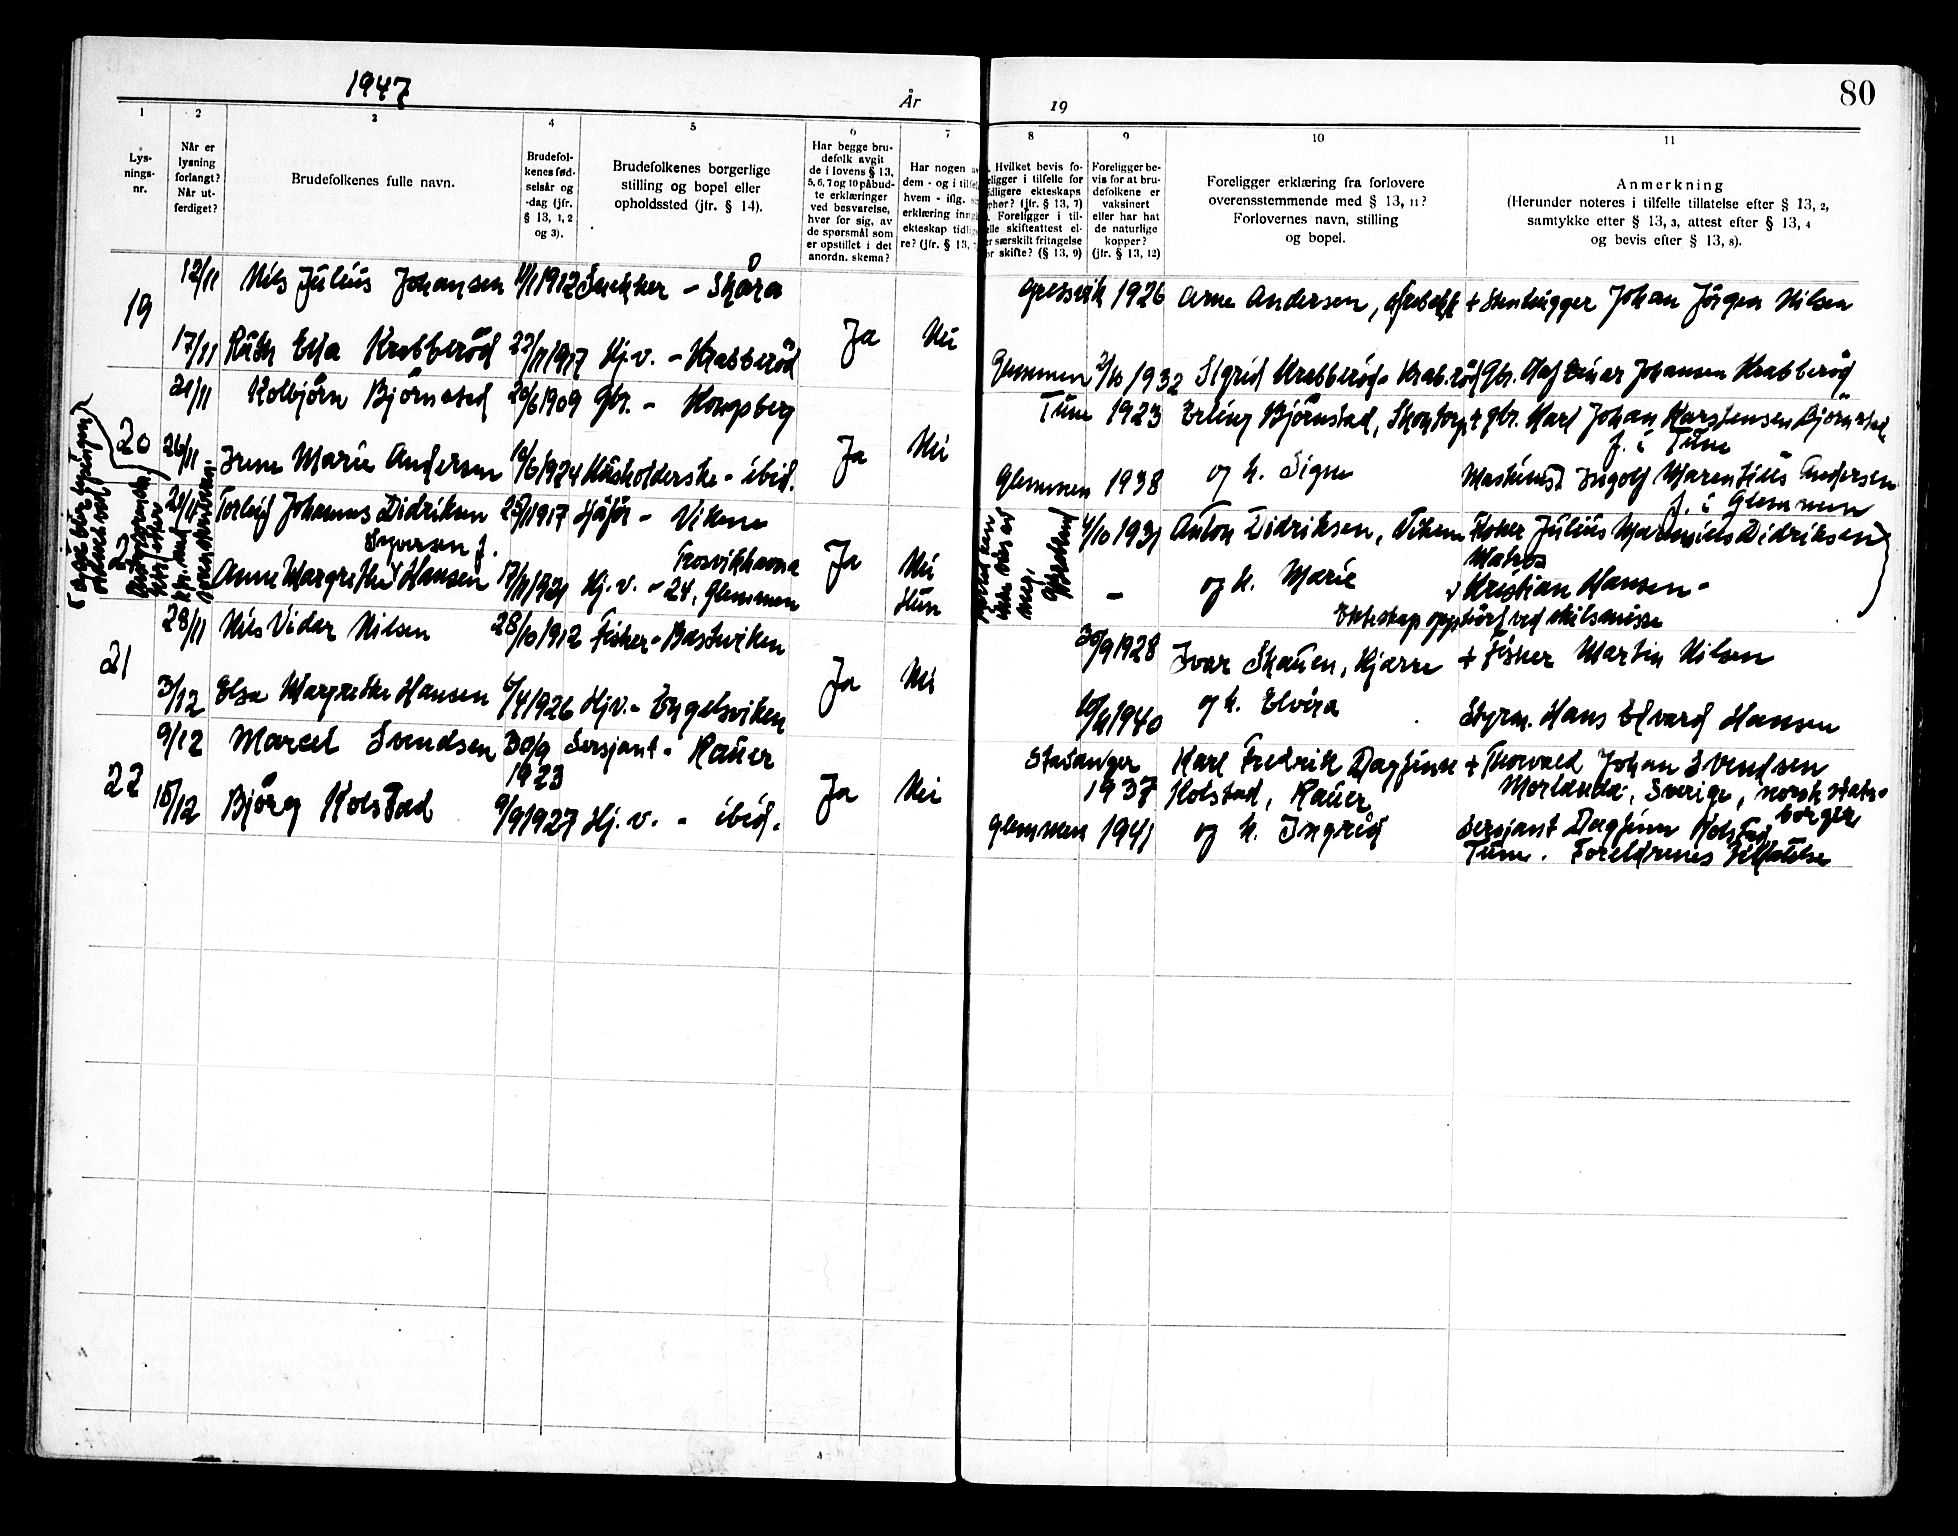 1947
År
19
80
1
2
3
4
5
6
7
8
9
10
11
Lys-
nings-
nr.
Når er
lysning
forlangt?
Når ut-
ferdiget?
Brudefolkenes fulle navn.
Brudefol-
kenes fød-
selsår og
-dag (jfr.
§ 13, 1, 2
og 3).
Brudefolkenes borgerlige
stilling og bopel eller
opholdssted (jfr. § 14).
Har begge bru-
defolk avgit
de i lovens § 13,
5, 6, 7 og 10 påbud-
te erklæringer
ved besvarelse,
hver for sig, av
de spørsmål som
er opstillet i det
anordn. skema?
Har nogen av
dem - og i tilfel
hvem - iflg.
erklæring inng
ekteskap tidlig
re? (jfr. § 13,
Hvilket bevis fo-
religger i tilfelle for
tidligere ekteskaps
ophør? (jfr. § 13, 7)
Foreligger i til-
felle skifteattest el-
ler særskilt fritagelse
for skifte? (§ 13, 9)
Foreligger be-
vis for at bru-
defolkene er
vaksinert
eller har hat
de naturlige
kopper?
(jfr. § 13, 12)
Foreligger erklæring fra forlovere
overensstemmende med § 13, 11?
Forlovernes navn, stilling
og bopel.
Anmerkning
(Herunder noteres i tilfelle tillatelse efter § 13, 2,
samtykke efter § 13, 3, attest efter § 13, 4
og bevis efter § 13, 8).
19
12/11 Nils Julius Johansen 11/1 1912 Snekker - Skåra
17/11 Ruth Elsa Krabberød 22/11 1917 Hj.v. - Krabberød
Ja Nei
Gressvik 1926 Arne Andersen, + Stenhugger Johan Jørgen Nilsen
Glemmen 2/10 1932 Sigrid Krabberød - Krab.rød Gbr. Olaf Einar Johansen Krabberød
20
21/11 Kolbjørn Bjørnstad 20/6 1909 Gbr. - Kongsberg
26/11 Irene Marie Andersen 12/6 1924 Husholderske - ibid.
Ja Nei
Tune 1923 Erling Bjørnstad, + gbr. Karl Johan Karstensen Bjørnstad
f. i Tune
Glemmen 1938 og h. Signe Maskinist Ingolf Marentius Andersen
f. i Glemmen
Torleif Johannes Didriksen 25/1 1917 Hyjør - Vikene
Syversen f. Trosvikhavna
Anne Margrethe Hansen 17/11 1921 Hj.v. - 24, Glemmen
Ja Nei
Hun
4/10 1931 Anton Didriksen, Vikene Fisker Julius Marenius Didriksen
Matros
- og h. Marie Kristian Hansen -
Ekteskap oppløst ved skilsmisse
21
28/11 Nils Vidar Nilsen 28/10 1912 Fisker - Bastuviken
3/12 Elsa Margrethe Hansen 6/4 1926 Hjv. - Engelsviken
Ja Nei
30/9 1928 Ivar Skauen, Kjærre + Fisker Martin Nilsen
1940 og h. Elvira Styrm. Hans Edvard Hansen
22
9/12 Marcel Svendsen 30/9 Sersjant - Rauer
1923
10/12 Bjørg Kolstad 9/9 1927 Hj.v. - ibid.
Ja Nei
Stavanger Karl Fredrik Dagfinn + Thorvald Johan Svendsen
1937 Kolstad, Rauer Morlanda, Sverige, norsk stats-
borger
Glemmen 1941 og h. Ingrid Sersjant Dagfinn Kolstad
Tune. Foreldrenes tillatelse